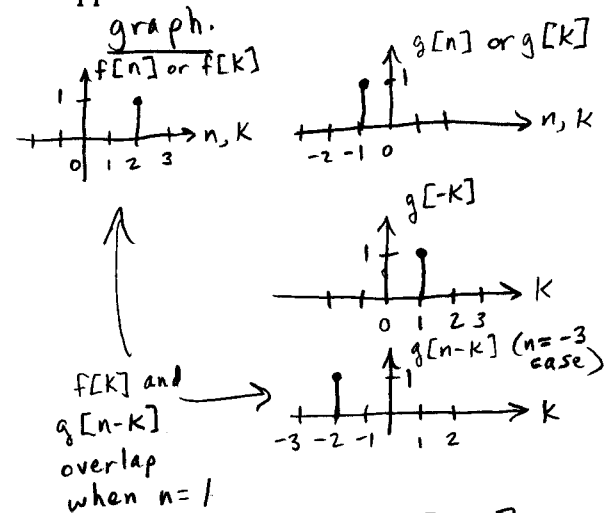 graph.
f[n] or f[k]
1
n, k
0 1 2 3
g[n] or g[k]
1
n, k
-2 -1 0
g[-k]
1
k
0 1 2 3
g[n-k] (n=-3
case)
1
k
-3 -2 -1 1 2
f[k] and
g[n-k]
overlap
when n=1